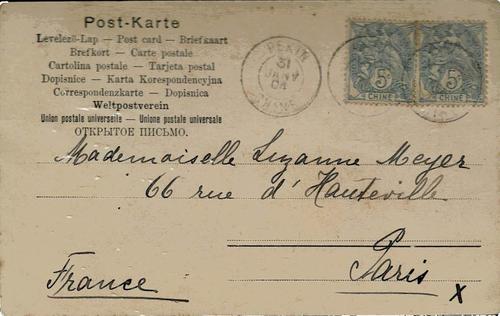 Post-Karte
Levelező-Lap — Post card — Briefkaart
Brefkort — Carte postale
Cartolina postale — Tarjeta postal
Dopisnice — Karta Korespondencyjna
Correspondenzkarte — Dopisnica
Weltpostverein
Union postale universelle — Unione postale universale
ОТКРЫТОЕ ПИСЬМО.
PEKIN
31
JANV
04
CHINE
5c 5c
CHINE CHINE
Mademoiselle Suzanne Meyer
66 rue d'Hauteville
Paris
France
x